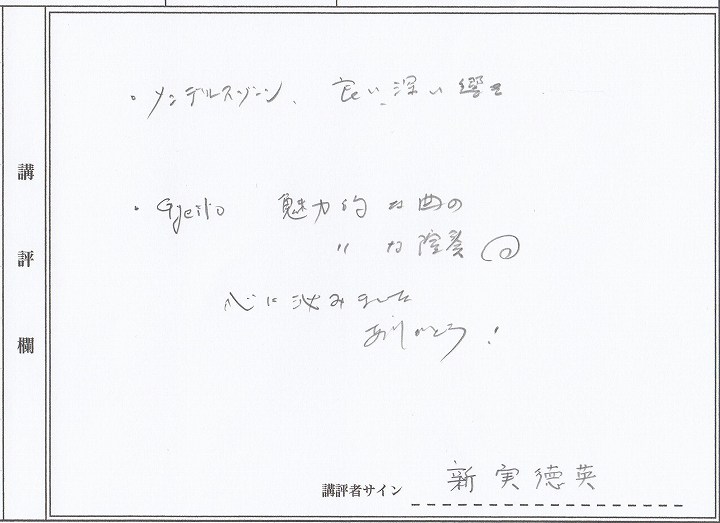 講評欄
・メンデルスゾーン、良い、深い響き
・Gjeilo 魅力的な曲の
〃 な演奏
心に沁みました
ありがとう！
講評者サイン 新実徳英